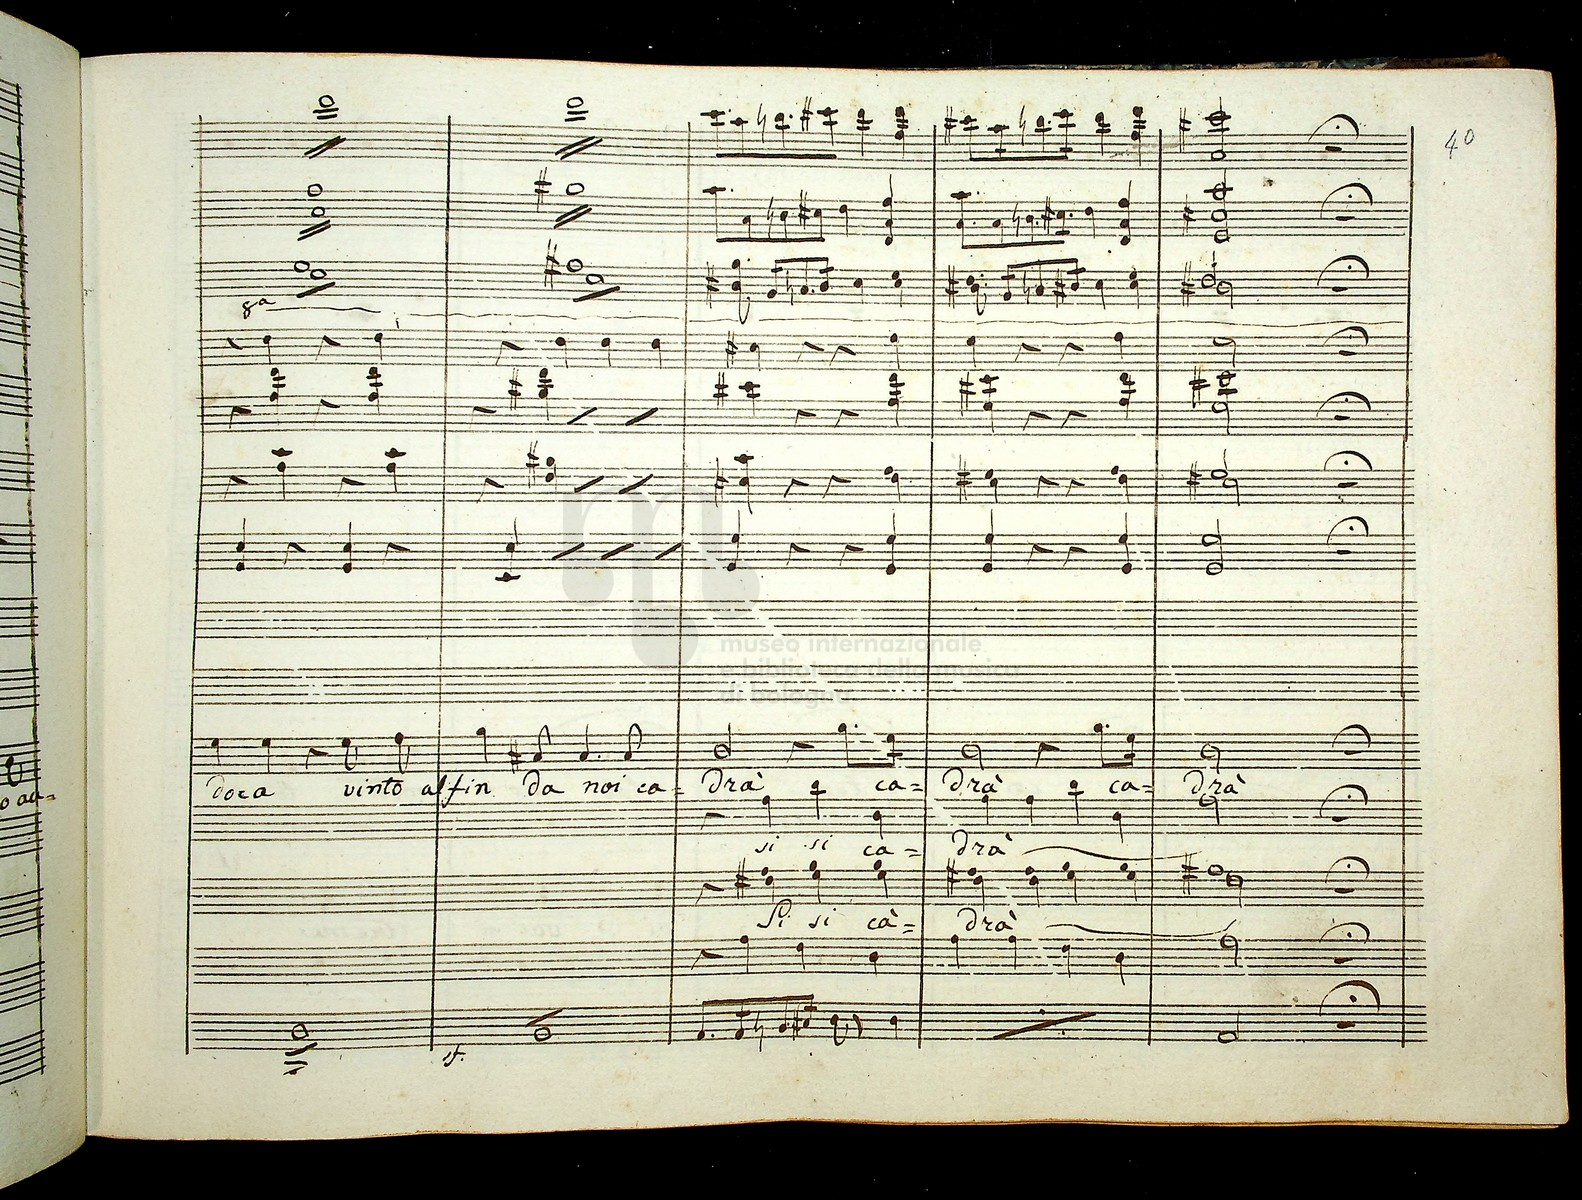 40
8a
museo internazionale
e biblioteca della musica
di bologna
doca vinto alfin da noi ca= drà ca= drà ca= drà
si si ca= drà
Si si cà= drà
sf.